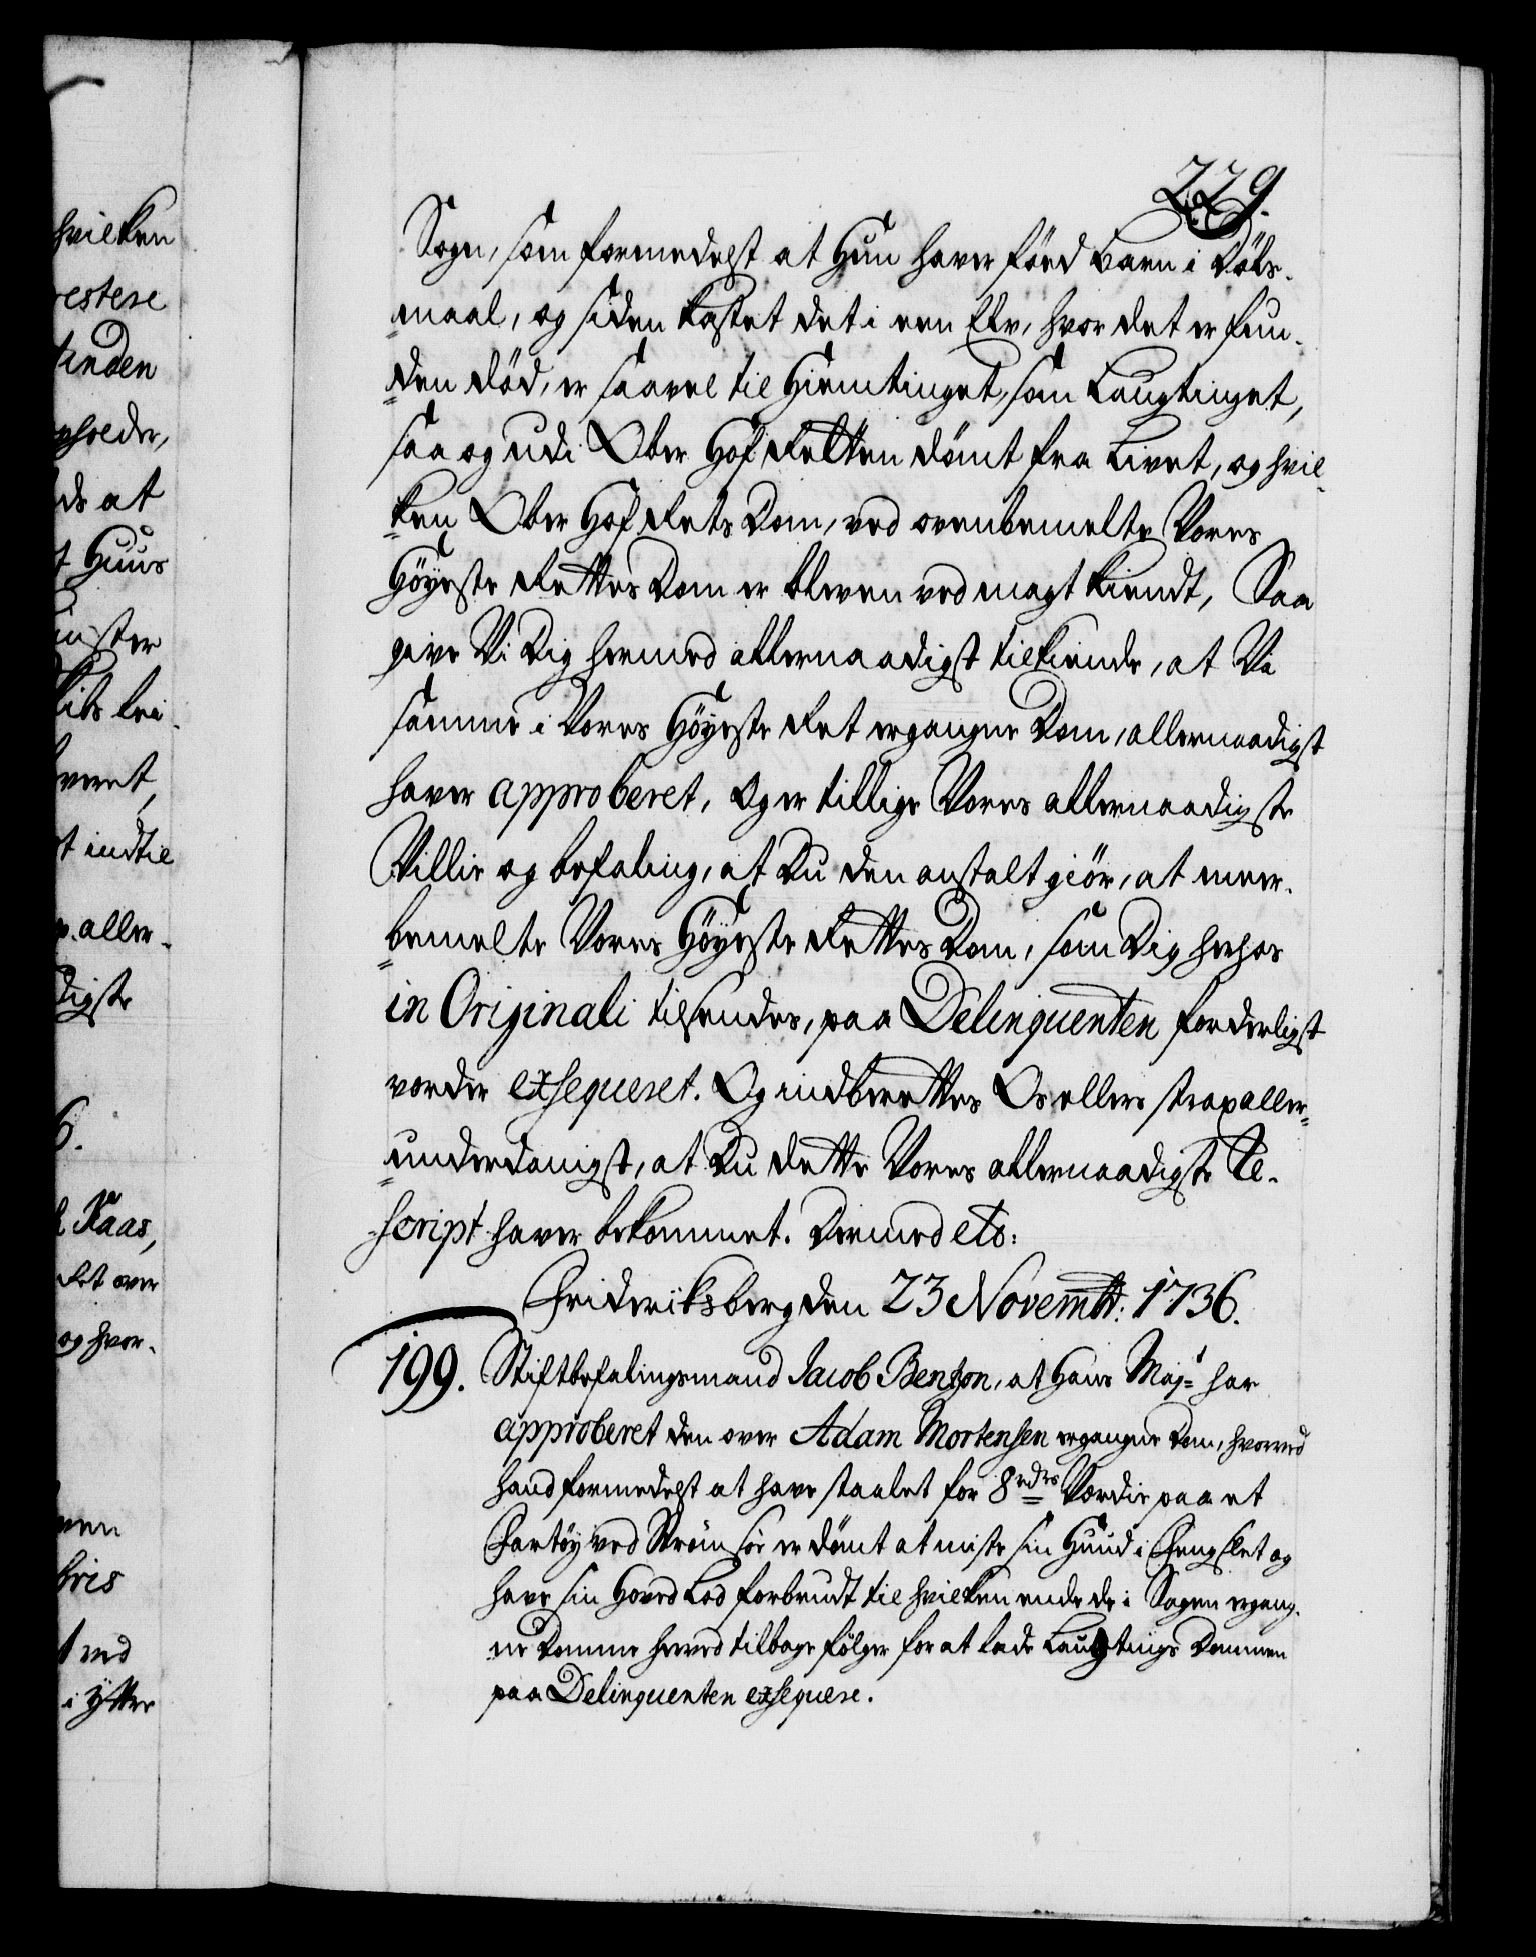 229.
Sogn, som formedelst at Hun haver föed Barn i Döls-
maal, og siden kastet det i een Elv, hvor det er fun-
den död, er saavel til Hiemtinget, som Laugtinget,
saa og udi Ober Hof Retten dömt fra Livet, og hvil-
ken Ober Hof Rets Dom, ved ovenbemelte Vores
Höyeste Rettes Dom er bleven ved magt kiendt, Saa
give Vi Dig hermed allernaadigst tilkiende, at Vi
samme i Vores Höyeste Ret ergangne Dom, allernaadigst
haver approberet, Og er tillige Vores allernaadigste
Villie og befaling, at Du den anstalt giör, at meer-
bemelte Vores Höyeste Rettes Dom, som Dig herhos
in Originali tilsendes, paa Delinquenten forderligst
vorder exseqveret. Og indberettes Os ellers strax aller-
underdanigst, at Du dette Vores allernaadigste Re-
script haver bekommet. Dermed etc:
Friderichsberg den 23 Novembr: 1736.
199. Stiftbefalingsmand Jacob Bentzon, at Hans Majt har
approberet den over Adam Mortensen ergangne Dom, hvorved
hand formedelst at have staalet for 8 rdrs Værdie paa et
Fartöy ved Strömsöe er dömt at miste sin Huud i Fengslet og
have sin Hoved Lod forbrudt til hvilken ende de i Sagen ergang-
ne Domme herved tilbage fölger for at lade Laugtings Dommen
paa Delinquenten exseqvere.
hvilken
restere
finden
de at
t Huus
veret,
t indtil
aller-
digste
6.
Kaas,
Ret over
og hvor-
ved
i Ytter